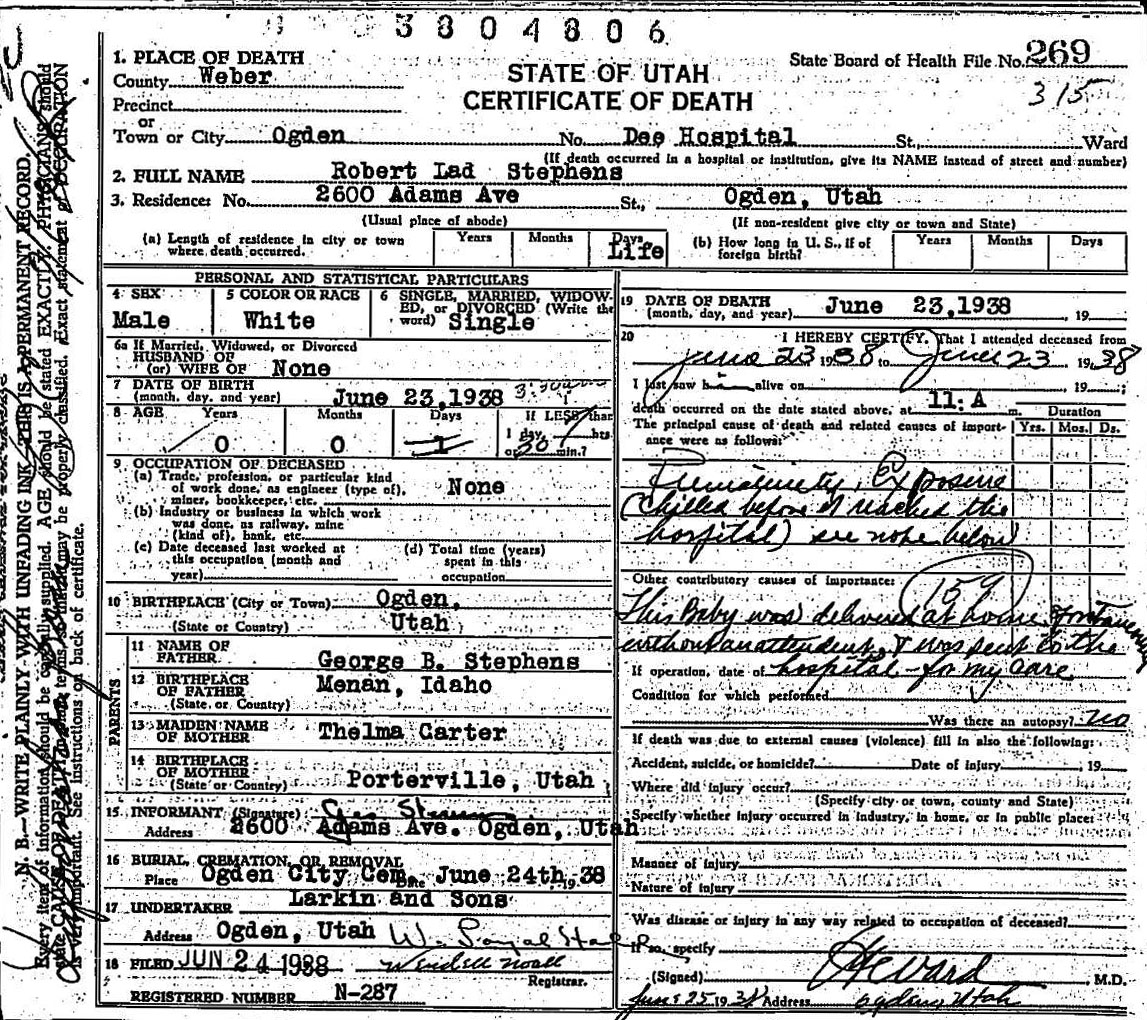 3804806
State Board of Health File No. 269
315
STATE OF UTAH
CERTIFICATE OF DEATH
1. PLACE OF DEATH
County Weber
Precinct
or
Town or City Ogden No. Dee Hospital St., Ward
(If death occurred in a hospital or institution, give its NAME instead of street and number)
2. FULL NAME Robert Lad Stephens
3. Residence: No. 2600 Adams Ave St., Ogden, Utah
(Usual place of abode) (If non-resident give city or town and State)
(a) Length of residence in city or town where death occurred. Years Months Days Life
(b) How long in U. S., if of foreign birth? Years Months Days
PERSONAL AND STATISTICAL PARTICULARS
4 SEX
Male
5 COLOR OR RACE
White
6 SINGLE, MARRIED, WIDOW-
ED, or DIVORCED (Write the
word) Single
6a If Married, Widowed, or Divorced
HUSBAND OF
(or) WIFE OF None
7 DATE OF BIRTH
(month, day, and year) June 23,1938
8 AGE Years Months Days If LESS than
0 0 1 1 day, hrs.
or 30 min.?
9 OCCUPATION OF DECEASED
(a) Trade, profession, or particular kind
of work done, as engineer (type of),
miner, bookkeeper, etc. None
(b) Industry or business in which work
was done, as railway, mine
(kind of), bank, etc.
(c) Date deceased last worked at
this occupation (month and
year)
(d) Total time (years)
spent in this
occupation
10 BIRTHPLACE (City or Town) Ogden,
(State or Country) Utah
PARENTS
11 NAME OF
FATHER George B. Stephens
12 BIRTHPLACE
OF FATHER Menan, Idaho
(State or Country)
13 MAIDEN NAME
OF MOTHER Thelma Carter
14 BIRTHPLACE
OF MOTHER
(State or Country) Porterville, Utah
15 INFORMANT (Signature)
Address 2600 Adams Ave. Ogden, Utah
16 BURIAL, CREMATION, OR REMOVAL
Place Ogden City Cem. Date June 24th, 19 38
17 UNDERTAKER Larkin and Sons
Address Ogden, Utah
18 FILED JUN 24 1938
Registrar.
REGISTERED NUMBER N-287
19 DATE OF DEATH
(month, day, and year) June 23,1938, 19
20 I HEREBY CERTIFY, That I attended deceased from
June 23 1938 to June 23 1938
I last saw him alive on , 19 ;
death occurred on the date stated above, at 11: A m. Duration
The principal cause of death and related causes of import-
ance were as follows: Yrs. Mos. Ds.
Prematurity, Exposure
(Chilled before it reached the
hospital) see note below
Other contributory causes of importance: 159
This Baby was delivered at home
without an attendent, & was sent to the
hospital for my care
If operation, date of
Condition for which performed
Was there an autopsy? no
If death was due to external causes (violence) fill in also the following:
Accident, suicide, or homicide? Date of injury , 19
Where did injury occur?
(Specify city or town, county and State)
Specify whether injury occurred in industry, in home, or in public place:
Manner of injury
Nature of injury
Was disease or injury in any way related to occupation of deceased?
If so, specify
(Signed) Ward, M.D.
June 25 1938 Address Ogden, Utah
N. B.—WRITE PLAINLY WITH UNFADING INK. THIS IS A PERMANENT RECORD.
See instructions on back of certificate.